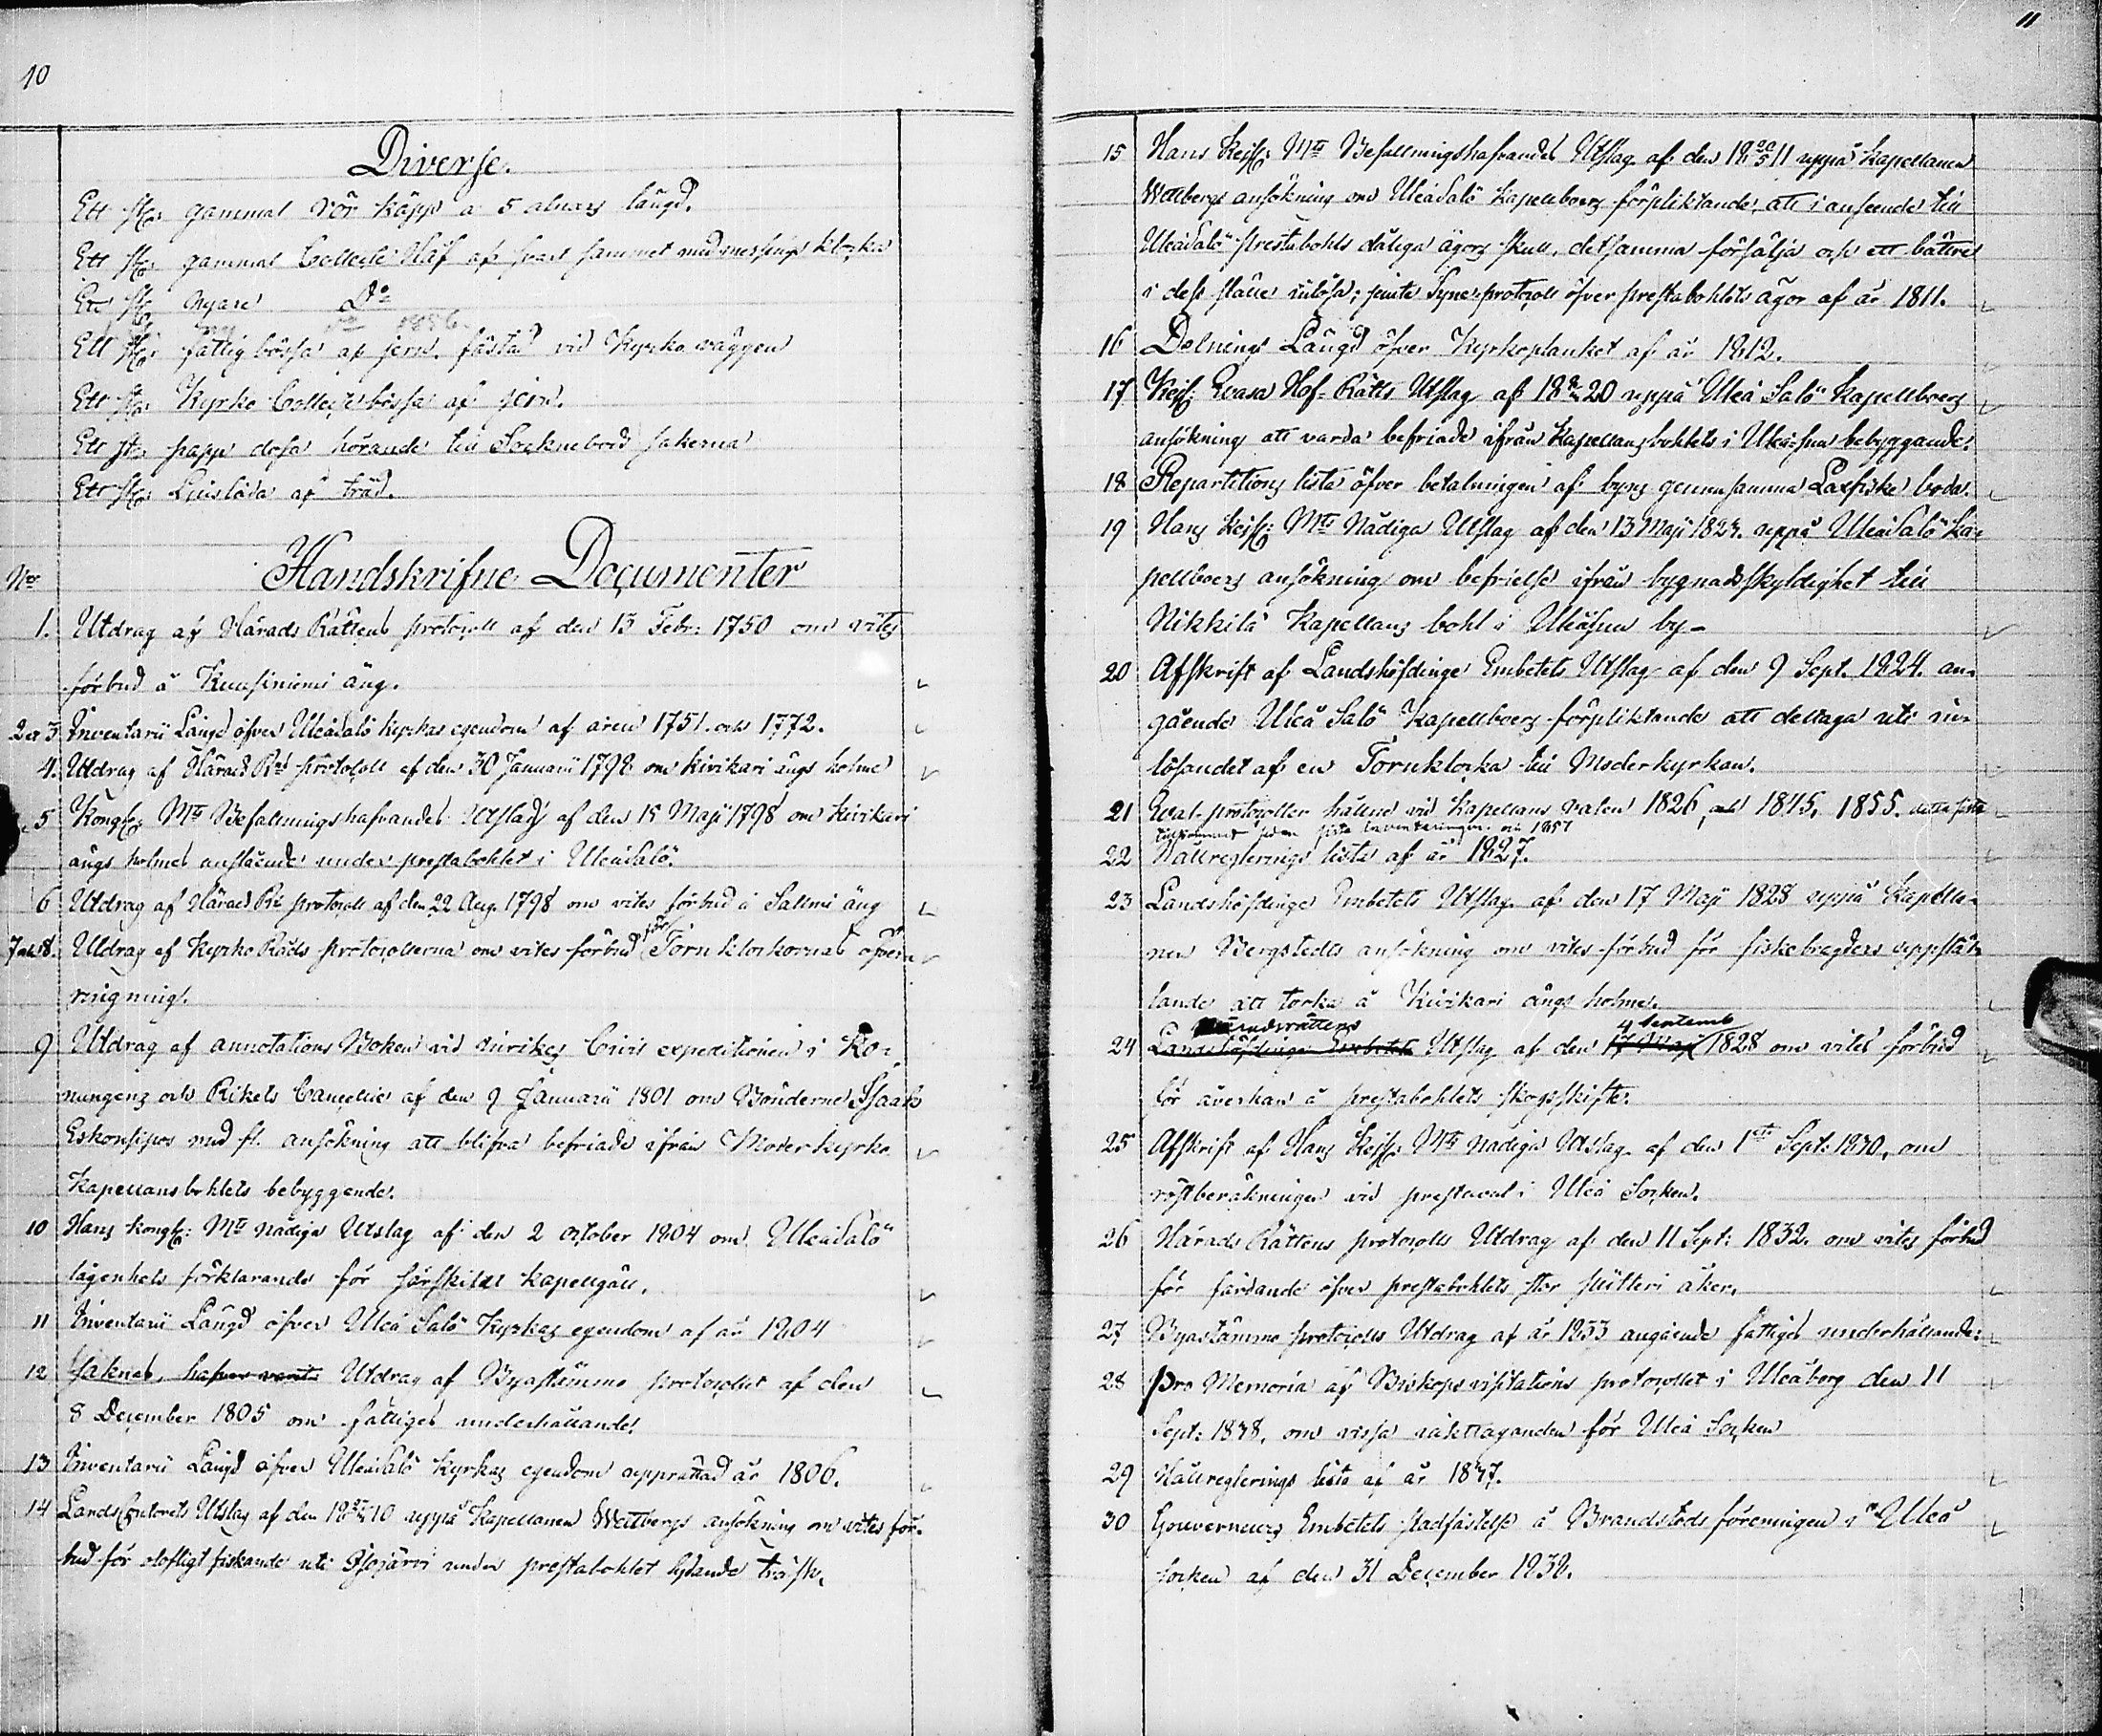 10
Diverse.
Ett st: gammal rör käpp a 5 alnars längd.
Ett st: gammal Collecte Håf af svart sammet med messings klocka
Ett st: nyare Do
1856.
Ett st: fattig bössa af jern, fästad vid Kyrko väggen
Ett st: Kyrko Collecte bössa af jern.
Ett st: papp dosa hörande till Socknebuds sakerna
Ett st: Ljuslåda af träd.
Handskrifne Documenter
No
1. Utdrag af Härads Rättens protocoll af den 13 Febr: 1750 om vites
förbud å Kuusiniemi äng.
2 o 3 Inventarii Längd öfver Uleåsalo kyrkas egendom af åren 1751. och 1772.
4. Utdrag af Härads Rns protocoll af den 30 Januarii 1798 om kivikari ängs holme
5 Kongl: Mts Befallningshafvandes Utslag af den 15 Maji 1798 om Kivikari
ängs holmes anslående under prestabohlet i Uleåsalo.
6 Utdrag af Härads Rs protocoll af den 22 Aug. 1798 om vites förbud å Salmi äng
7 och 8. Utdrag af Kyrko Råds protocollerna om vites förbud för Torn klockornas öfver
ringning.
9 Utdrag af annotations Boken vid inrikes Civil expeditionen i Ko-
nungens och Rikets Cancellie af den 9 Januarii 1801 om Bönderne Isaak
Eskonsipos med fl. ansökning att blifva befriade ifrån Moderkyrko
Kapellansbohlets bebyggende.
10 Hans kongl: Mts nådiga Utslag af den 2 October 1804 om Uleåsalö
lägenhets förklarande för särskildt kapellgäll.
11 Inventarii Längd öfver Uleå Salö Kyrkas egendom af år 1804
12 saknas, hafver varit Utdrag af Byastämmo protocollet af den
8 December 1805 om fattiges underhållande.
13 Inventarii Längd öfver Uleåsalö Kyrkas egendom upprättad år 1806.
14 Lands Contorets Utslag af den 18 10 uppå Kapellanen Wettbergs ansökning om vites för-
bud för olofligt fiskande uti Isojärvi under prestabohlet lydande träsk.
11
15 Hans Kejs: Mts Befallningshafvandes Utslag af den 18 20/5 11 uppå kapellanen
Wettbergs ansökning om Uleåsalö kapellboers förpliktande, att i anseende till
Uleåsalö prestabohls dåliga ägors skull, detsamma försälja och ett bättre
i dess ställe inlösa; jemte Syne-protocoll öfver prestabohlets ägor af år 1811.
16 Delnings Längd öfver Kyrkoplanket af år 1812.
17 Kejs: Wasa Hof-Rätts Utslag af 18 20 uppå Uleå Salö Kapellboers
ansökning att varda befriade ifrån kapellansbohlets i Uleåsuu bebyggande.
18 Repartitions lista öfver betalningen af byns gemensamma Laxfiske boda.
19 Hans Kejs: Mts Nådiga Utslag af den 13 Maji 1824. uppå Uleåsalö ka-
pellboers ansökning om befrielse ifrån bygnadsskyldighet till
Nikkilä Kapellans bohl i Uleåsuu by-
20 Afskrift af Landshöfdinge Embetets Utslag af den 9 Sept. 1824. an-
gående Uleå Salö Kapellboers förpliktande att deltaga uti in-
lösandet af en Tornklocka till Moderkyrkan.
21 Wal-protocoller hållne vid kapellans valen 1826, och 1845, 1855. detta sista
tillkommet sedan sista Inventeringen. år 1857
22 Hållreglerings lista af år 1827.
23 Landshöfdinge Embetets Utslag af den 17 Maji 1828 uppå Kapella-
nen Bergstedts ansökning om vites förbud för fiskebragders uppstäl-
lande att torka å Kivikari ängs holme.
Häradsrättens 4 Septemb
24 Landshöfdinge Embetets Utslag af den 17 Maji 1828 om vites förbud
för åverkan å prestabohlets skogsskifte.
25 Afskrift af Hans Kejs: Mts nådiga Utslag af den 1ste Sept: 1830, om
röstberäkningen vid prestaval i Uleå Socken.
26 Härads Rättens protocolls Utdrag af den 11 Sept: 1832. om vites förbud
för färdande öfver prestabohlets stor slätteri åker.
27 Byastämmo protocolls Utdrag af år 1833 angående fattiges underhållande:
28 Pro Memoria af Biskops visitations protocollet i Uleåborg den 11
Sept: 1838, om vissa iakttaganden för Uleå Socken
29 Hållreglerings lista af år 1847.
30 Gouverneurs Embetets stadfästelse å Brandstods föreningen i Uleå
socken af den 31 December 1838.